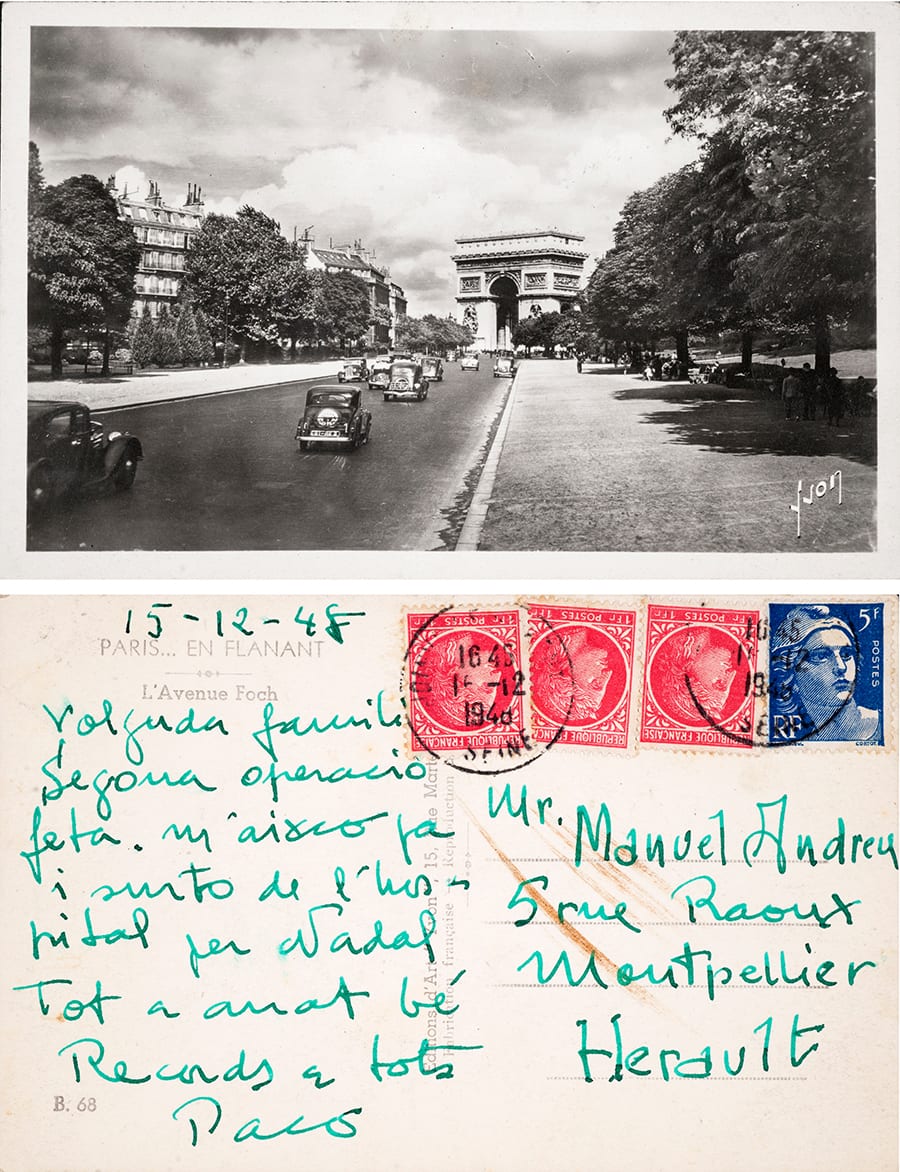 Yvon
15-12-48
PARIS... EN FLANANT
L'Avenue Foch
Volguda famili
Segona operació
feta. m'aixeco ja
i surto de l'hos-
pital per Nadal
Tot a anat bé
Records a tots
Paco
B. 68
1FR POSTES 1FR
REPUBLIQUE FRANÇAISE
1FR POSTES 1FR
REPUBLIQUE FRANÇAISE
1FR POSTES 1FR
REPUBLIQUE FRANÇAISE
5F
POSTES
RF
16 45
15 -12
1948
SEINE
1948
SEINE
Editions d'Art Yvon, 15, rue Mart
Fabrication française Reproduction
Mr. Manuel Andreu
5 rue Raoux
Montpellier
Herault